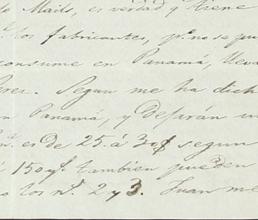 Mails, es verdad y tiene
los fabricantes, p.º no se pue
consume en Panamá, lleva
Segun me ha dich
n Panamá, y Dejirán u
es de 25. á 30¢ segun
150 yˢ. también pueden
los nˢ. 2 y 3. Juan me